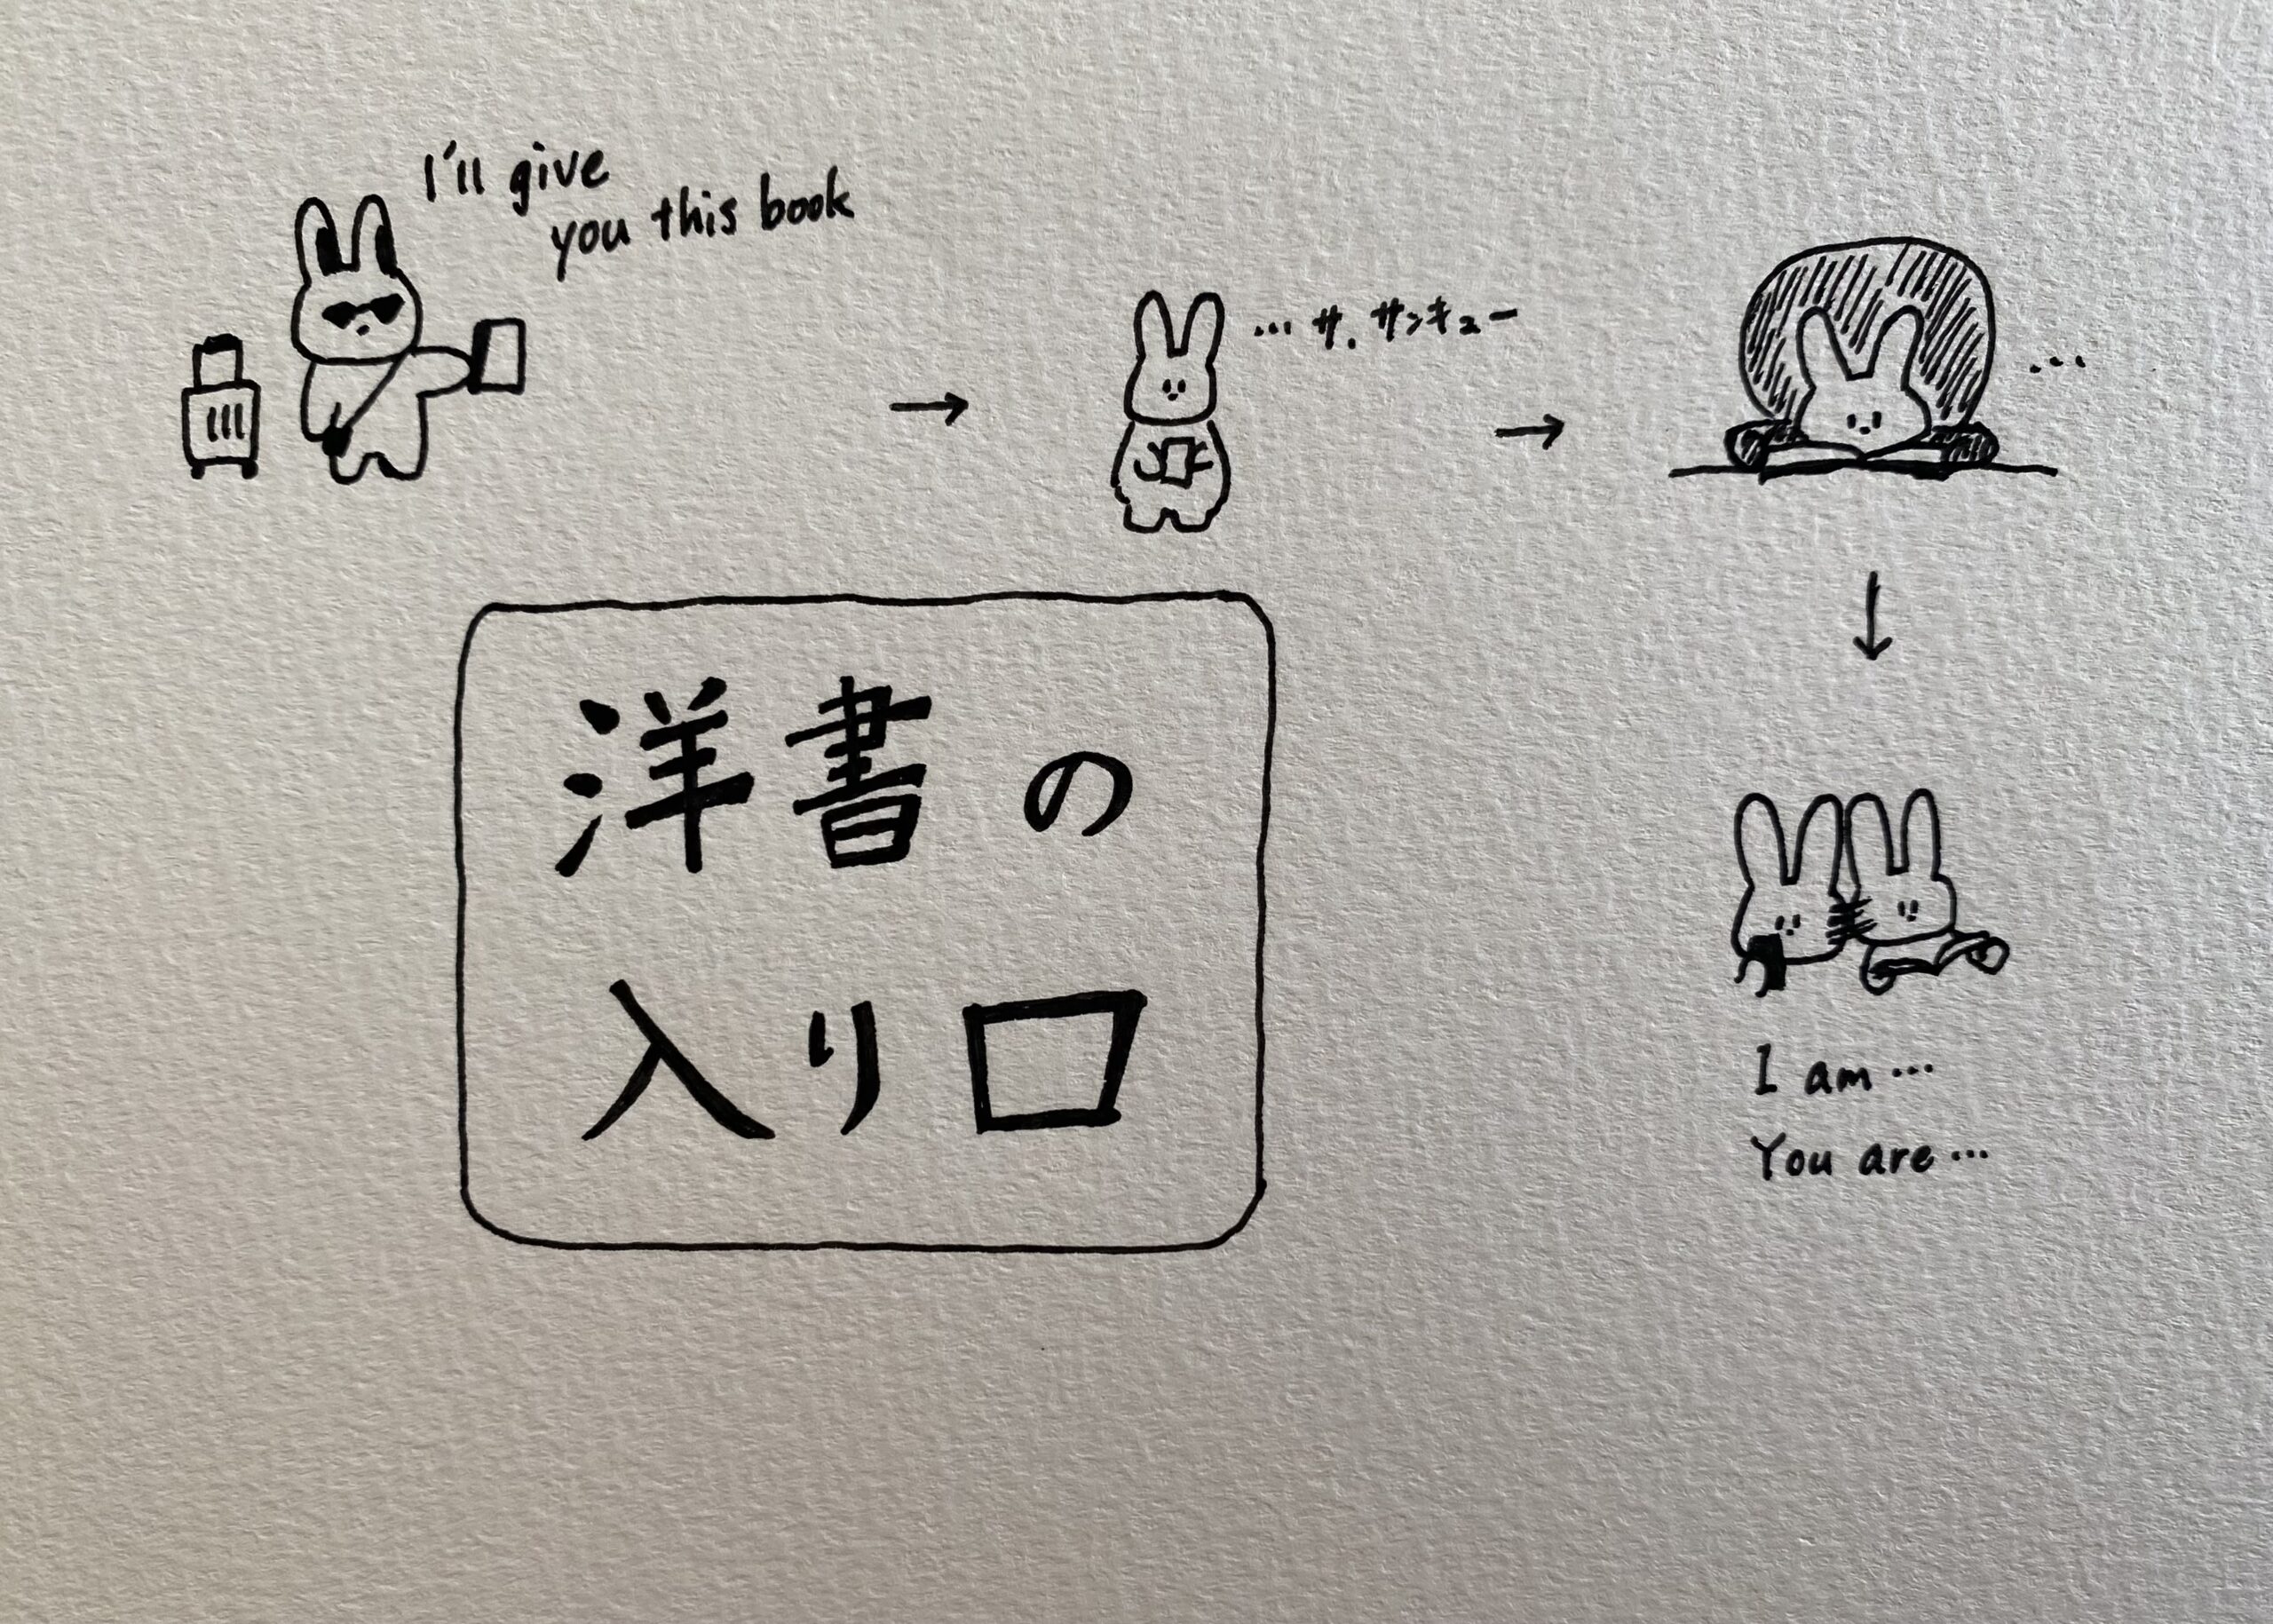 I'll give
you this book
… サ、サンキュー
…
洋書の
入り口
I am …
You are …